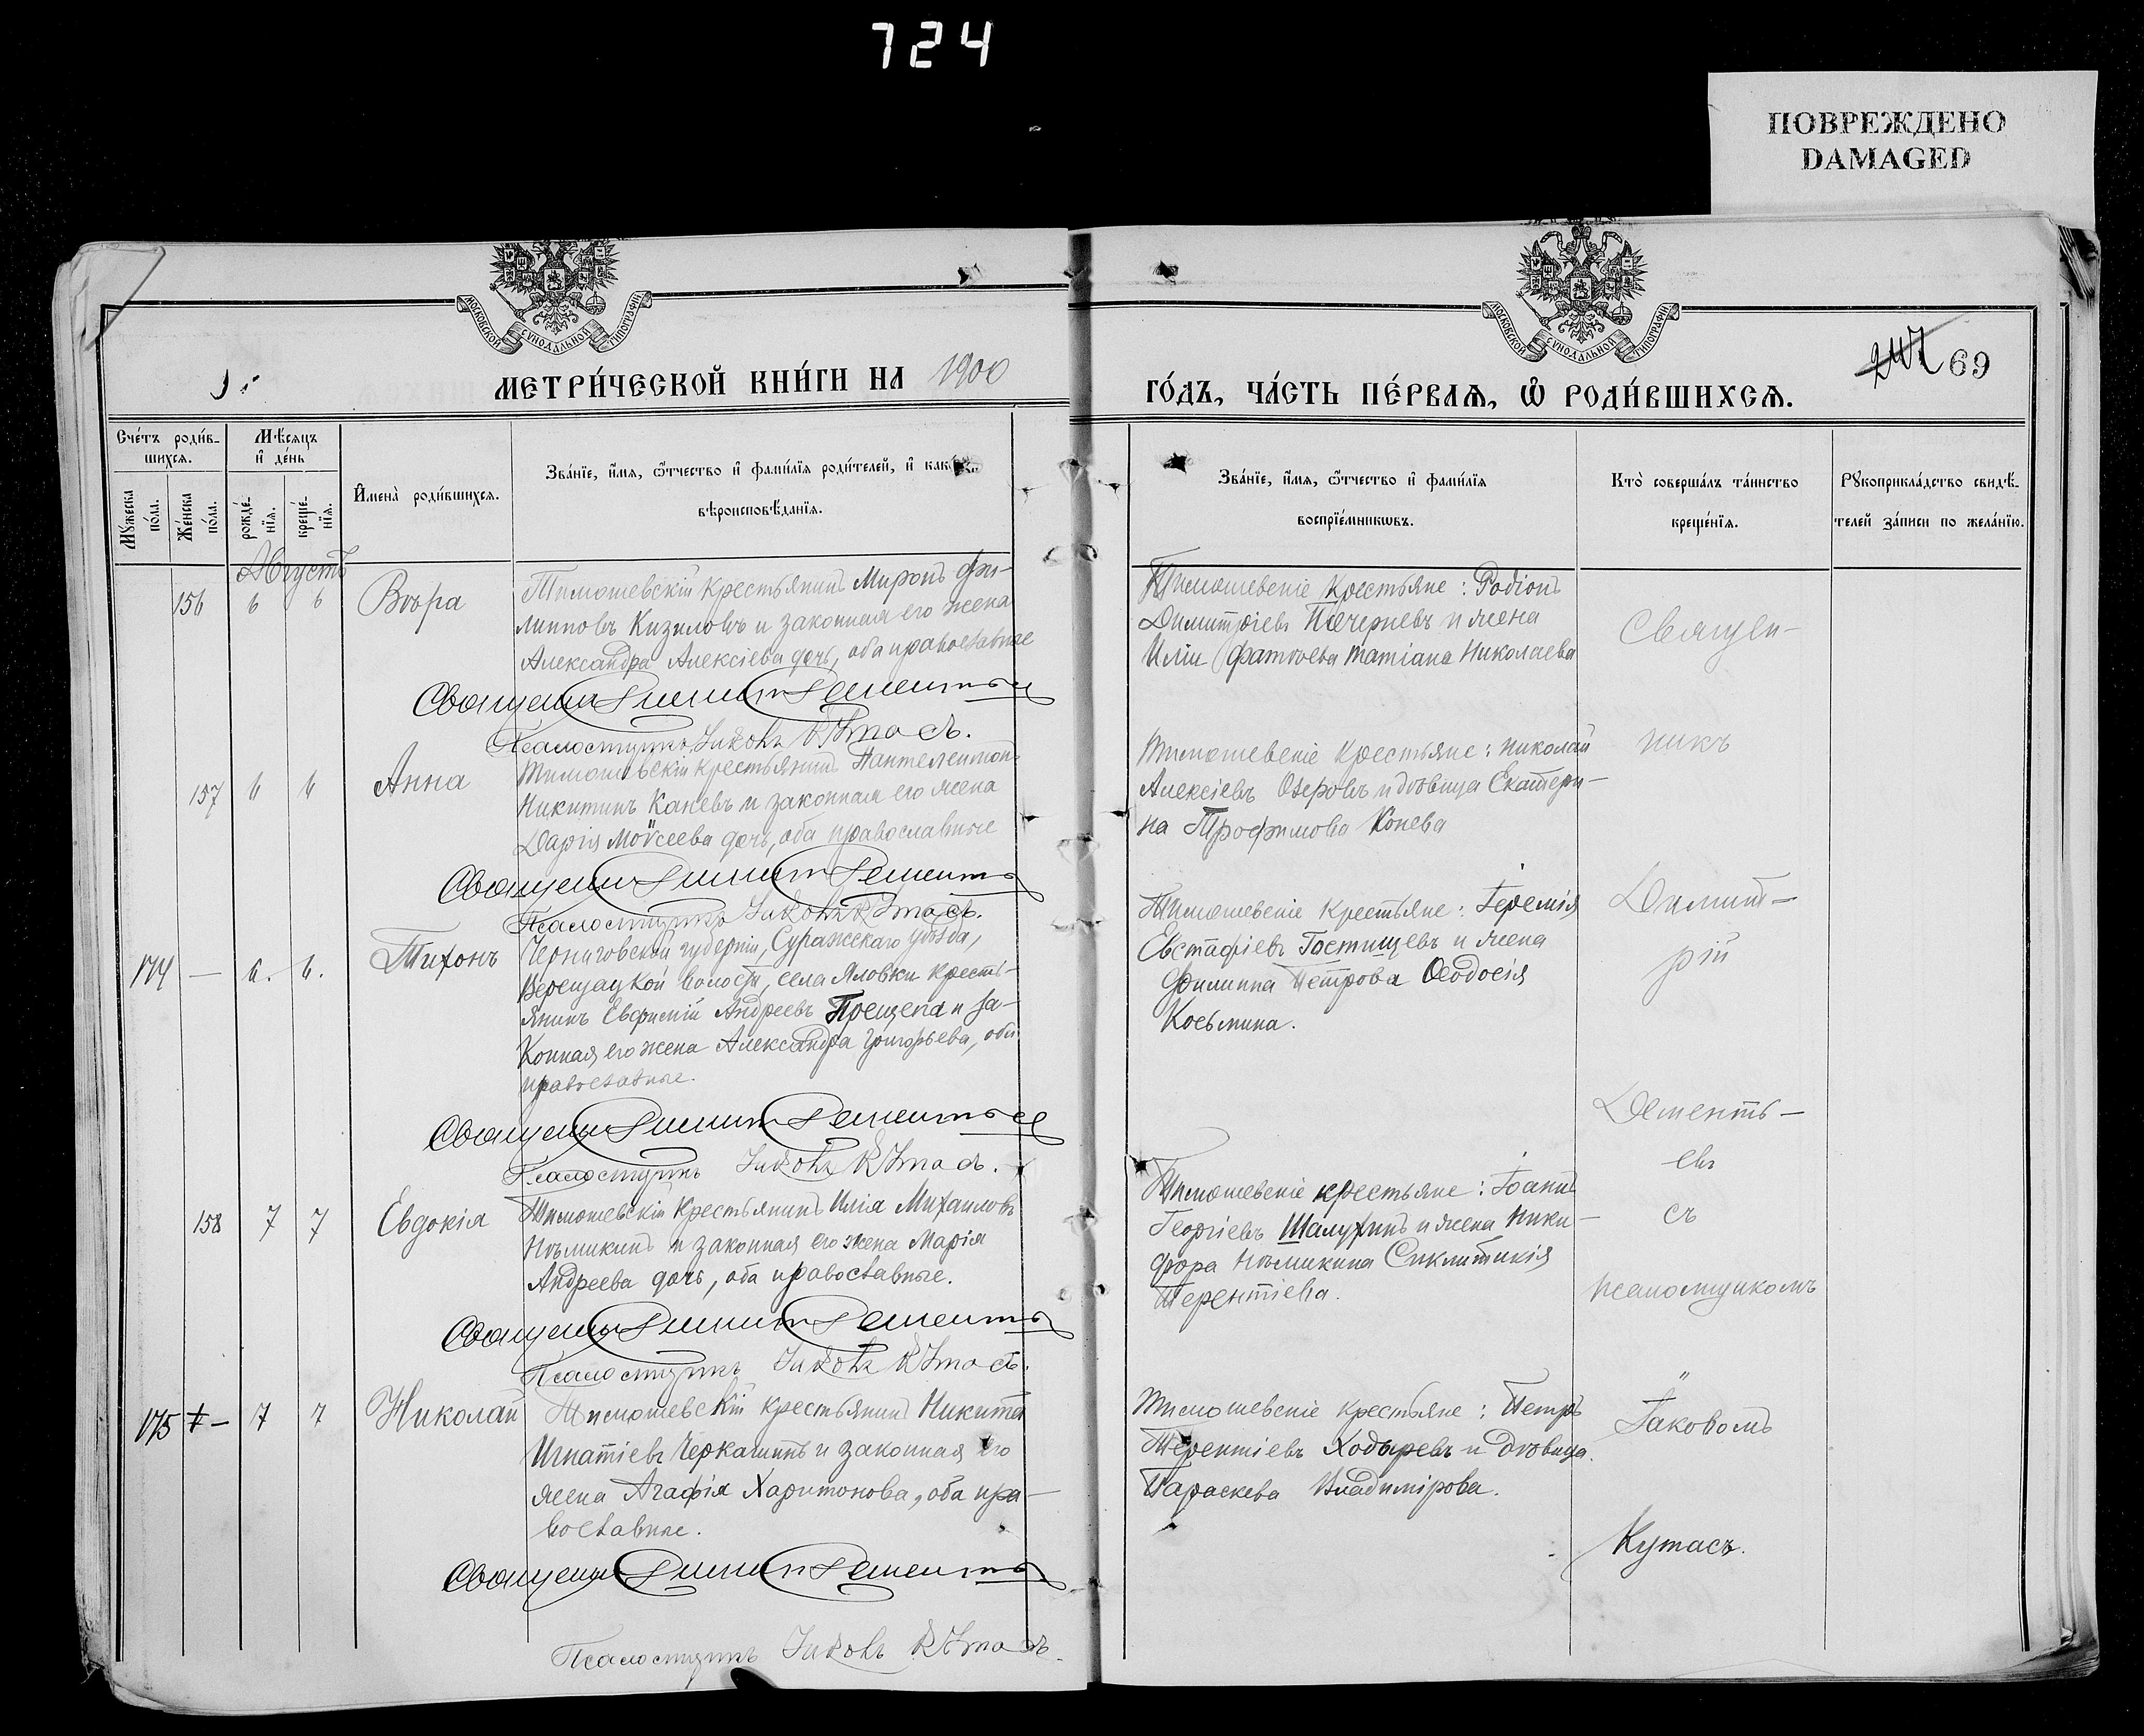 724
ПОВРЕЖДЕНО
DAMAGED
МОСКОВСКОЙ СѴНОДАЛЬНОЙ ТИПОГРАФІИ
МОСКОВСКОЙ СѴНОДАЛЬНОЙ ТИПОГРАФІИ
МЕТРИ́ЧЕСКОЙ КНИ́ГИ НА 1900
ГО́ДЪ, ЧА́СТЬ ПЕ́РВАѦ, Ѽ РОДИ́ВШИХСѦ.
69
Сче́тъ роди́в-
шихсѧ.
Мѣ́сѧцъ
и҆ де́нь
Мꙋжеска
по́ла.
Же́нска
по́ла.
рожде́-
нїѧ.
креще́-
нїѧ.
И҆мена̀ роди́вшихсѧ.
Зва́нїе, и҆́мѧ, ѻ҆́тчество и҆ фами́лїѧ роди́телей, и҆
вѣроисповѣ́данїѧ.
Зва́нїе, и҆́мѧ, ѻ҆́тчество и҆ фами́лїѧ
воспрїе́мникѡвъ.
Кто̀ соверша́лъ та́инство
креще́нїѧ.
Рꙋкоприкла́дство свидѣ́-
телей за́писи по жела́нїю.
Августъ
156 6 6 Вѣра
Тимошевскій крестьянинъ Миронъ Фи-
липповъ Кизиловъ и законная его жена
Александра Алексіева дочь, оба православные
Священ Димит Дементьев
Псаломщикъ Іаковъ Кутасъ.
Тимошевскіе крестьяне: Родіонъ
Димитріевъ Печерневъ и жена
Иліи Татіана Николаева
157 6 6 Анна
Тимошевскій крестьянинъ Пантелеимонъ
Никитинъ Каневъ и законная его жена
Дарія Моѵсеева дочь, оба православные
Священ Димит Дементь
Псаломщикъ Іаковъ Кутасъ.
Тимошевскіе крестьяне: Николай
Алексіевъ Озеровъ и дѣвица Екатери-
на Трофимова Конева
174 — 6. 6. Тихонъ
Черниговской губерніи, Суражскаго уѣзда,
Верещацкой волости, села Яловки кресть-
янинъ Евфимій Андреевъ Прещепа и за-
конная его жена Александра Григорьева, оба
православные.
Священ Димит Дементьев
Псаломщикъ Іаковъ Кутасъ.
Тимошевскіе крестьяне: Іеремія
Евстафіевъ Гостищевъ и жена
Филиппа Петрова Ѳеодосія
Косьмина.
158 7 7 Евдокія
Тимошевскій крестьянинъ Илія Михаиловъ
Нѣмикинъ и законная его жена Марія
Андреева дочь, оба православные.
Священ Димит Дементь
Псаломщикъ Іаковъ Кутасъ.
Тимошевскіе крестьяне: Іоаннъ
Георгіевъ Шалухинъ и жена Ники-
фора Нѣмикина Сиклитикія
Терентіева.
175 — 7 7 Николай
Тимошевскій крестьянинъ Никита
Игнатіевъ Черкашинъ и законная его
жена Агафія Харитонова, оба пра-
вославные.
Священ Димит Дементь
Псаломщикъ Іаковъ Кутасъ.
Тимошевскіе крестьяне: Петръ
Терентіевъ Ходыревъ и дѣвица
Параскева Владимірова.
Священ-
никъ
Димит-
рій
Дементь-
евъ
съ
псаломщикомъ
Іаковомъ
Кутасъ.